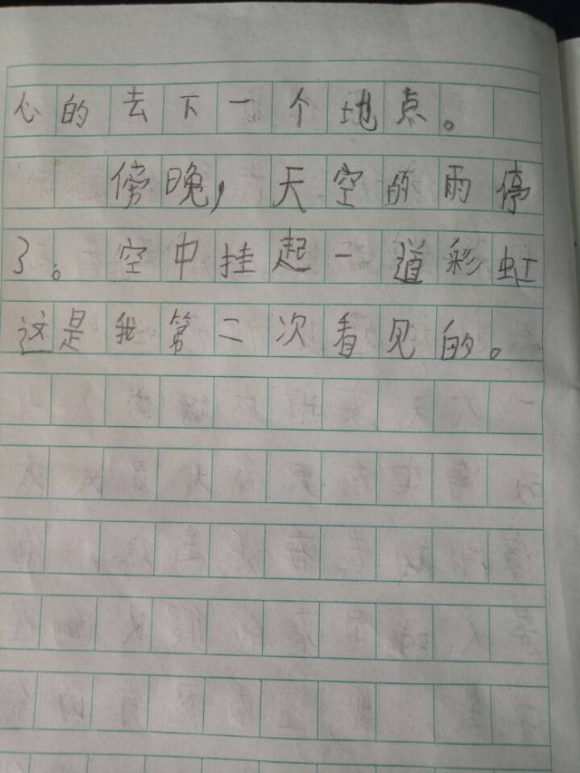 心的去下一个地点。
傍晚，天空的雨停
了。空中挂起一道彩虹
这是我第二次看见的。